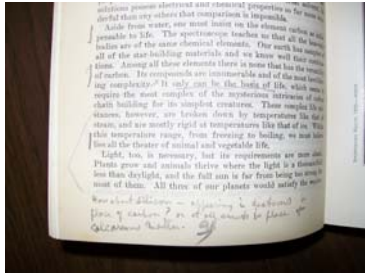 solutions possess electrical and chemical properties so far more
derful than any others that comparison is impossible.
Aside from water, one must insist on the element carbon as
pensable to life. The spectroscope teaches us that all the heavenly
bodies are of the same chemical elements. Our earth has
all of the star-building materials and we know well their
tions. Among all these elements there is none that has the versatility
of carbon. Its compounds are innumerable and of the most bewilder-
ing complexity. It only can be the basis of life, which seems to
require the most complex of the mysterious intricacies of
chain building for its simplest creatures. These complex life sub-
stances, however, are broken down by temperatures like that of
steam, and are mostly rigid at temperatures like that of ice. Within
this temperature range, from freezing to boiling, we must believe
lies all the theater of animal and vegetable life.
Light, too, is necessary, but its requirements are more elastic.
Plants grow and animals thrive where the light is a thousand
less than daylight, and the full sun is far from being too strong for
most of them. All three of our planets would satisfy the
How about Silicon – appearing in
place of carbon? or at all events be place of
calcareous matter.